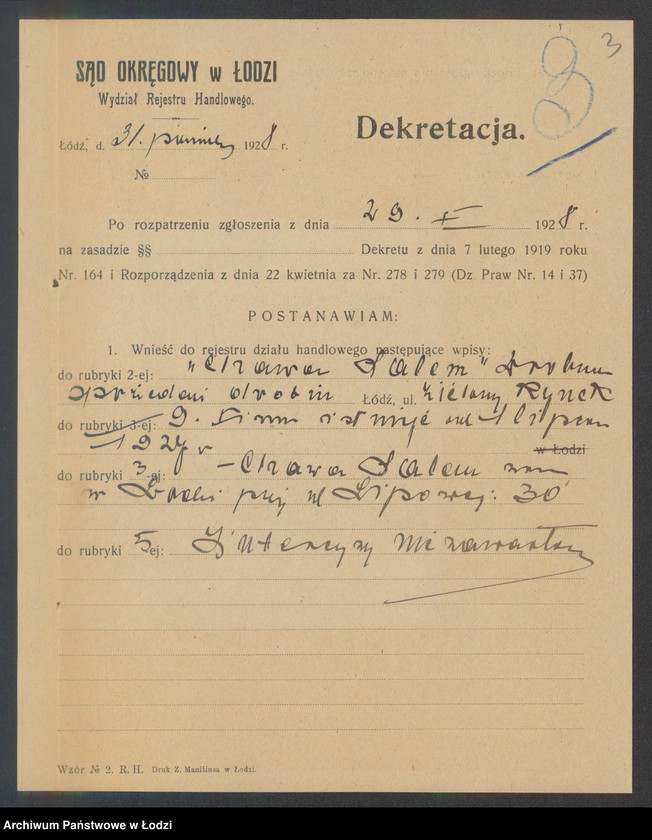 3
SĄD OKRĘGOWY w ŁODZI
Wydział Rejestru Handlowego.
Łódź, d. 31. 1928 r.
№
Dekretacja.
Po rozpatrzeniu zgłoszenia z dnia 29. X 1928 r.
na zasadzie §§ Dekretu z dnia 7 lutego 1919 roku
Nr. 164 i Rozporządzenia z dnia 22 kwietnia za Nr. 278 i 279 (Dz. Praw Nr. 14 i 37)
POSTANAWIAM:
1. Wnieść do rejestru działu handlowego następujące wpisy:
do rubryki 2-ej: "Chawa Salem" Drobna
sprzedaż drobiu Łódź, ul. Zielony Rynek
do rubryki 3-ej: 9. Firma istnieje od 1 lipca
1927 r w Łodzi
do rubryki 3-ej: - Chawa Salem zam
w Łodzi przy ul Lipowej: 30
do rubryki 5 ej: Intercyzy nie zawarła
Wzór № 2. R. H. Druk Z. Manitiusa w Łodzi.
Archiwum Państwowe w Łodzi